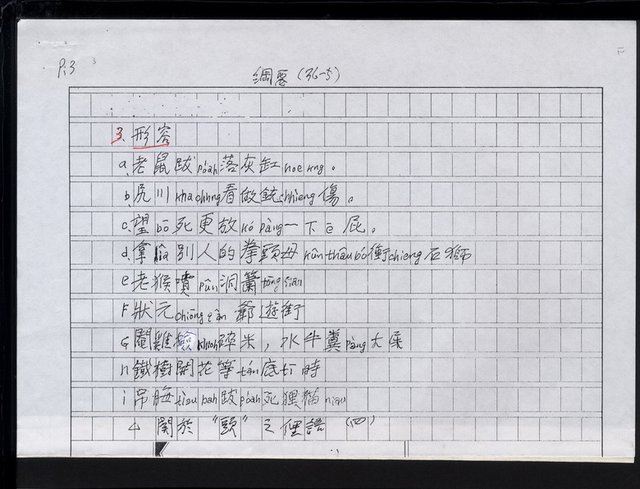 P.3
綱要 (36-5)
3. 形容
a. 老鼠跋poah落灰缸hoe kng。
b. 尻川kha chhng看做銃chhèng傷。
c. 望bō死更放kó pàng一下ē屁。
d. 拿lia別人的拳頭母kûn-thâu-bó衝chieng石獅
e 老猴噴pûn洞簫tōng siau
F 狀元chiōng goân 遊街
G 鬮雞撿khioh碎米，水牛糞pàng大
h 鐵樹開花等tán底tī時
i 吊脰tiau 跋poah死狸貓niau
4 關於“頭”之俚語 (四)